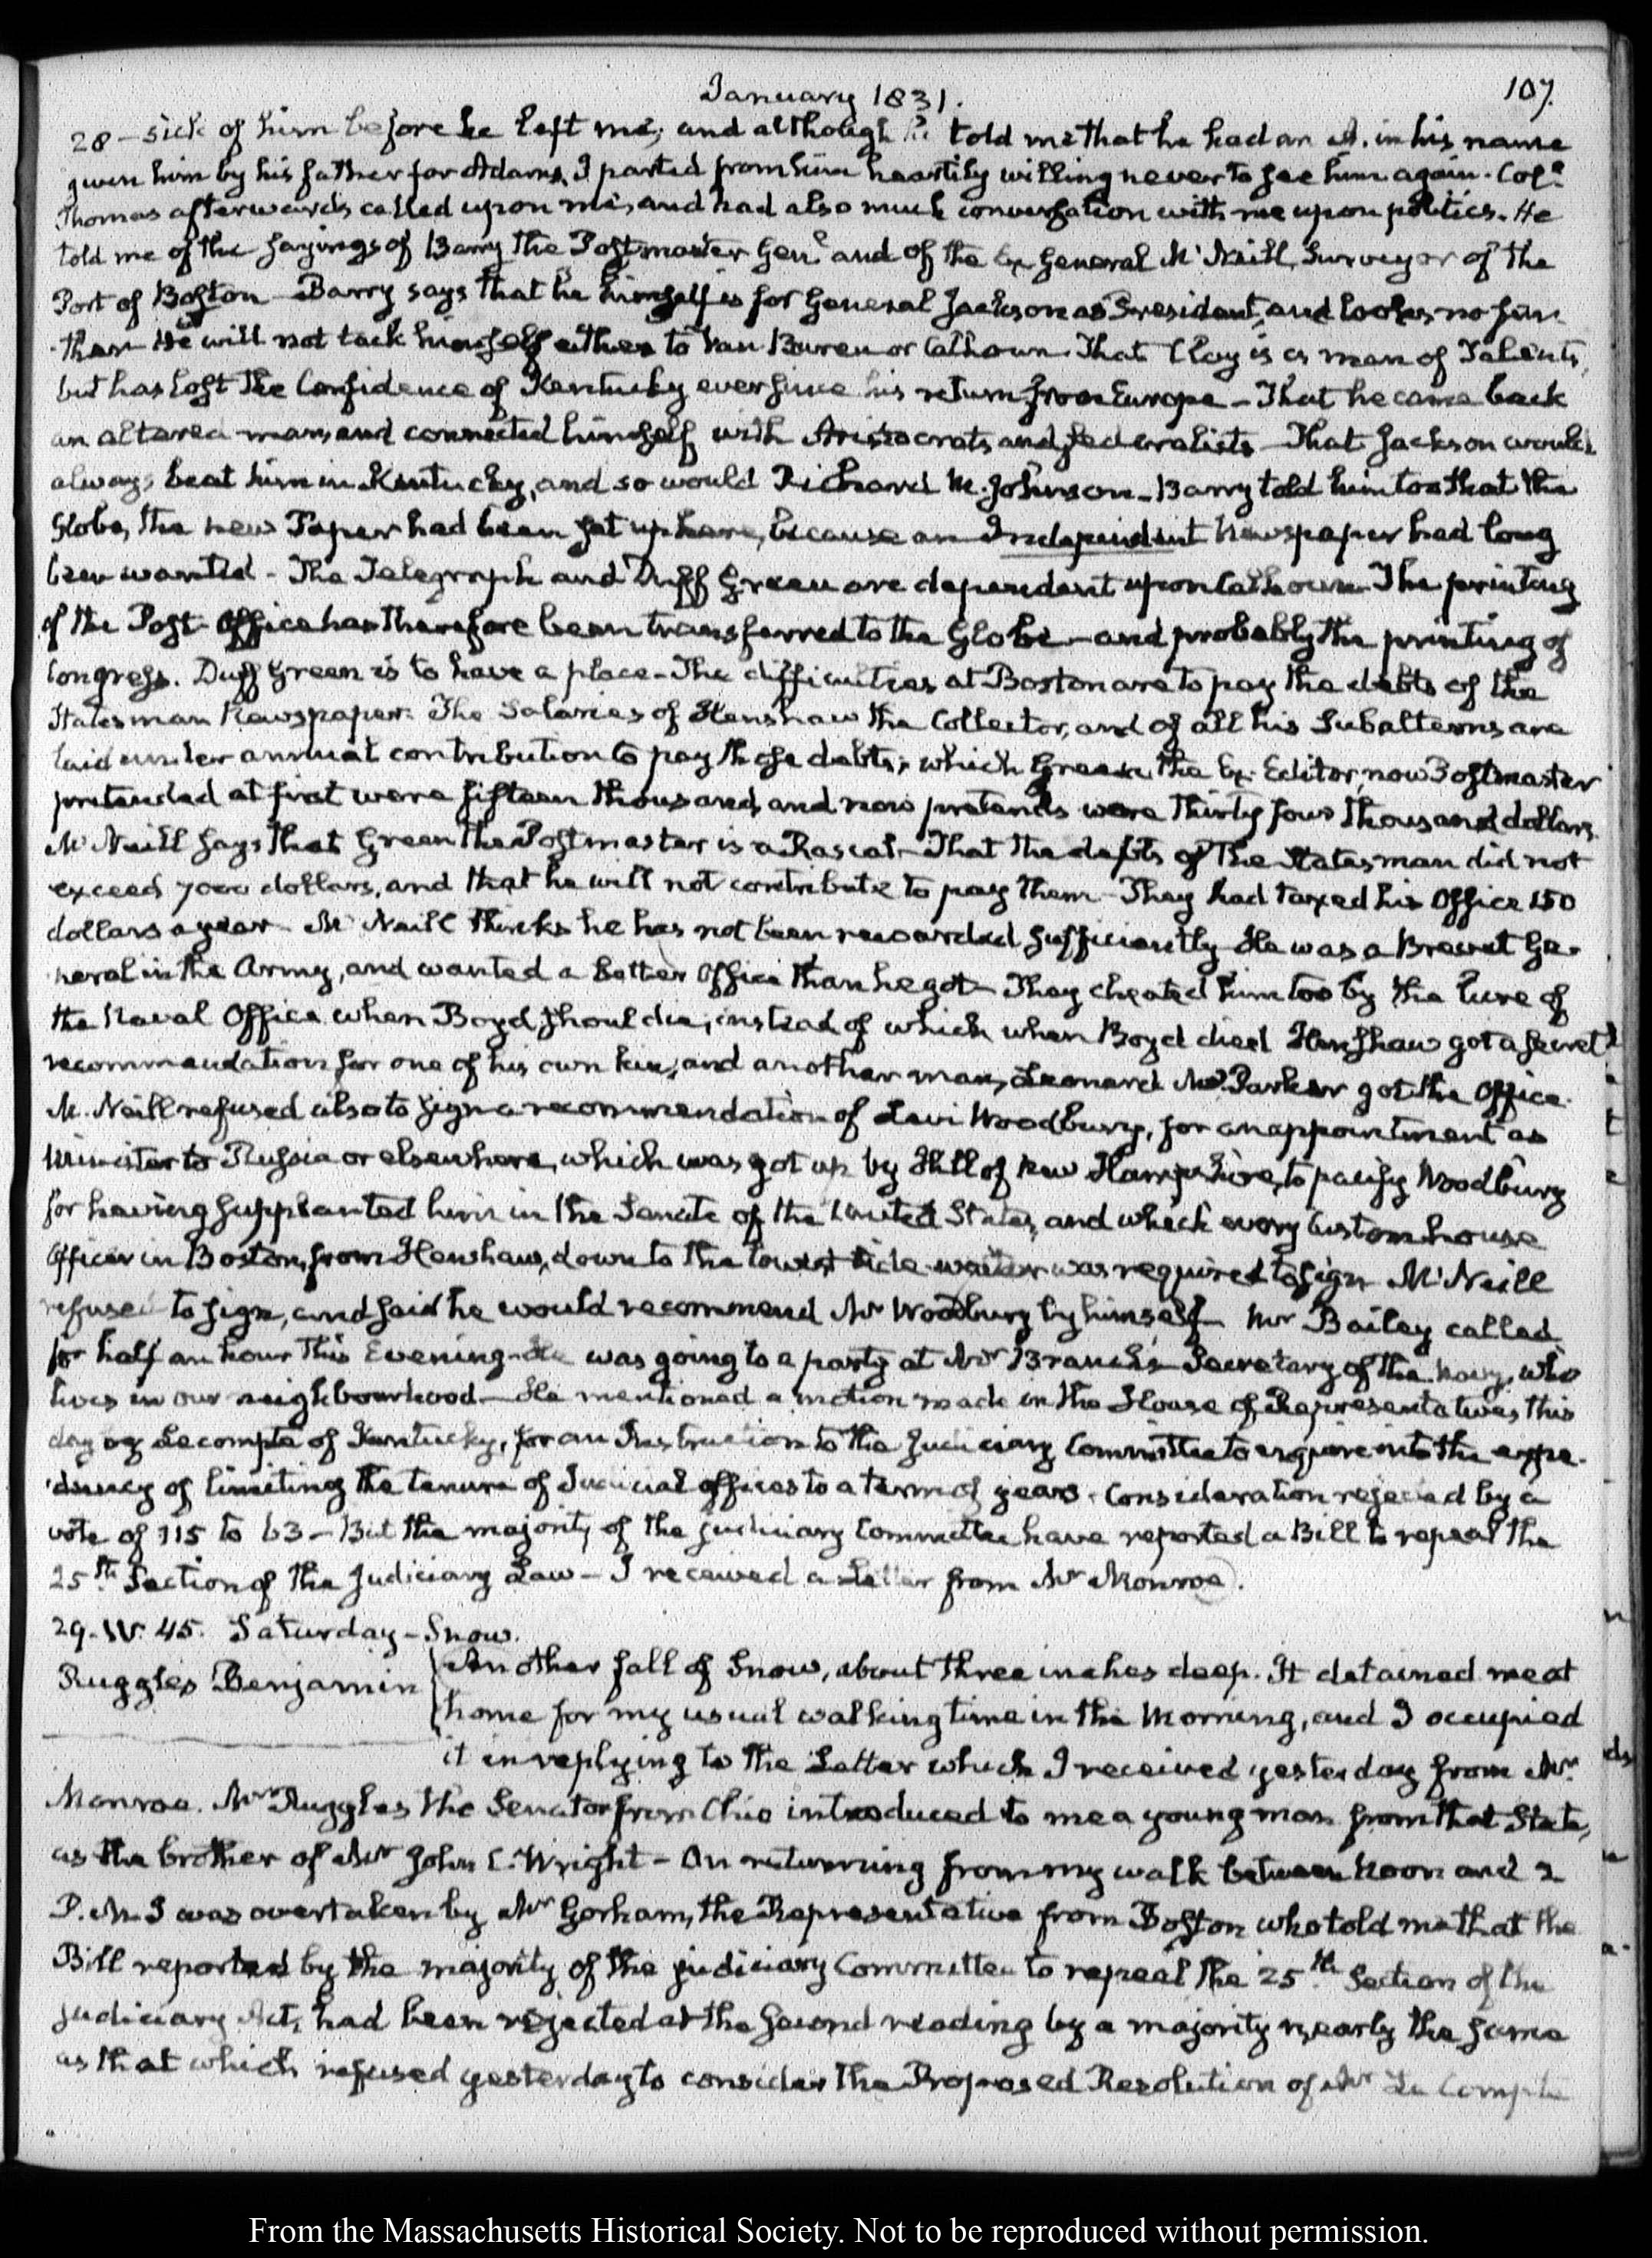 January 1831.
107.
28 — sick of him before he left me; and although he told me that he had an A. in his name
given him by his father for Adams, I parted from him heartily willing never to see him again. Col.º
Thomas afterwards called upon me, and had also much conversation with me upon politics. He
told me of the sayings of Barry the Postmaster Gen.l and of the Ex General M'Neill, Surveyor of the
Port of Boston — Barry says that he himself is for General Jackson as President, and looks no fur-
ther. He will not tack himself either to Van Buren or Calhoun. That Clay is a man of Talents,
but has lost the Confidence of Kentucky ever since his return from Europe — That he came back
an altered man, and connected himself with Aristocrats and federalists — That Jackson would
always beat him in Kentucky, and so would Richard M. Johnson — Barry told him too that the
Globe, the new Paper had been set up here, because an Independent Newspaper had long
been wanted — The Telegraph and Duff Green are dependent upon Calhoun. The printing
of the Post-Office has therefore been transferred to the Globe — and probably the printing of
Congress. Duff Green is to have a place — The difficulties at Boston are to pay the debts of the
Statesman Newspaper. The Salaries of Henshaw the Collector, and of all his Subalterns are
laid under annual contribution to pay those debts; which Green, the Ex-Editor, now Postmaster
pretended at first were fifteen thousand, and now pretends were thirty four thousand dollars.
M'Neill says that Green the Postmaster is a Rascal — That the debts of the Statesman did not
exceed 7000 dollars, and that he will not contribute to pay them — They had taxed his Office 150
dollars a year — M'Neill thinks he has not been rewarded sufficiently. He was a Brevet Ge-
neral in the Army, and wanted a better Office than he got — They cheated him too by the lure of
the Naval Office when Boyd should die; instead of which when Boyd died Henshaw got a secret
recommendation for one of his own kin, and another man, Leonard M. Parker got the Office.
M. Neill refused also to sign a recommendation of Levi Woodbury, for an appointment as
Minister to Russia or elsewhere, which was got up by Hill of New Hampshire, to pacify Woodbury
for having supplanted him in the Senate of the United States, and which every Custom house
Officer in Boston, from Henshaw, down to the lowest tide-waiter was required to sign — M'Neill
refused to sign, and said he would recommend Mr Woodbury by himself — Mr Bailey called
for half an hour this Evening — He was going to a party at Mr Branch's Secretary of the Navy, who
lives in our neighbourhood — He mentioned a motion made in the House of Representatives, this
day by Lecompte of Kentucky, for an Instruction to the Judiciary Committee to enquire into the expe-
diency of limiting the tenure of Judicial offices to a term of years. Consideration rejected by a
vote of 115 to 63 — But the majority of the judiciary Committee have reported a Bill to repeal the
25.th Section of the Judiciary Law — I received a Letter from Mr Monroe.
29. IV. 45. Saturday — Snow.
Ruggles Benjamin
Another fall of Snow, about three inches deep. It detained me at
home for my usual walking time in the Morning, and I occupied
it in replying to the Letter which I received yesterday from Mr
Monroe. Mr Ruggles the Senator from Ohio introduced to me a young man from that State,
as the brother of Mr John C. Wright — On returning from my walk between Noon and 2
P.M. I was overtaken by Mr Gorham, the Representative from Boston who told me that the
Bill reported by the majority of the judiciary Committee to repeal the 25.th Section of the
judiciary Act, had been rejected at the second reading by a majority nearly the same
as that which refused yesterday to consider the Proposed Resolution of Mr Le Compte
From the Massachusetts Historical Society. Not to be reproduced without permission.